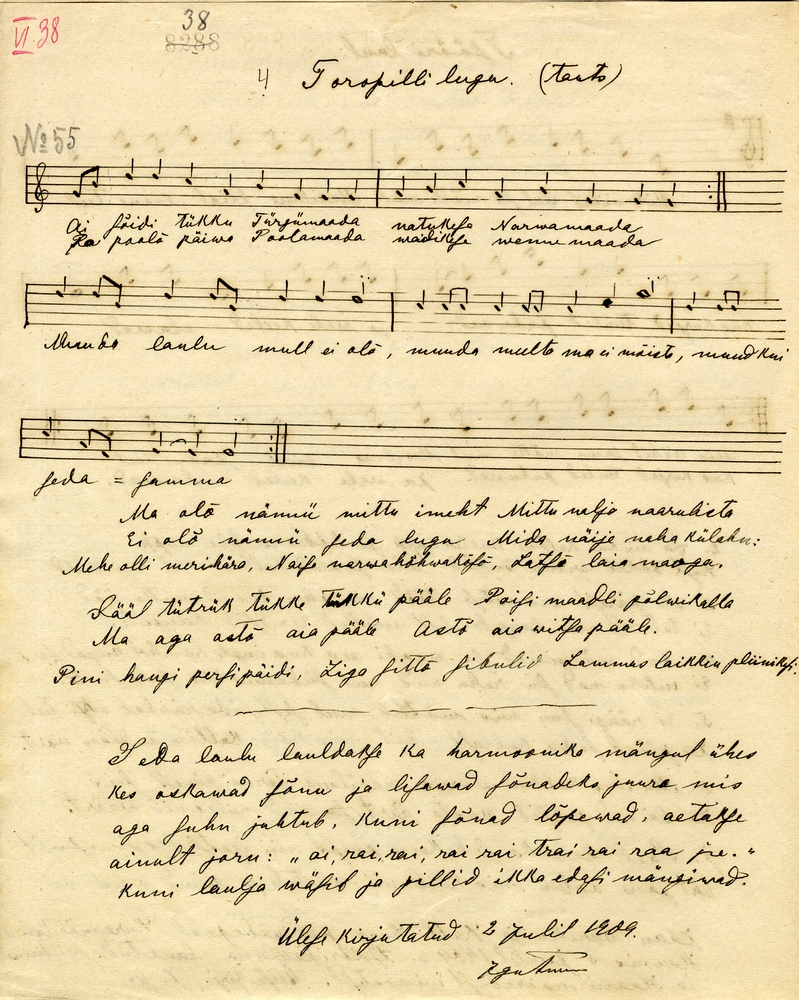 VI 38
38
8288
4 Toropilli lugu. (tants)
№ 55
Ai sõidi tükku Türgümaada natukese Narwamaada
Ka poolõ päiwa Poolamaada wädikese wenne maada
Muuda laulu mull ei olõ, muuda meelta ma ei mõista, muud kui
seda = samma
Ma olõ nännü mittu imeht Mittu nalja naarulista
Ei olõ nännü seda lugu Mida näije naha külahn:
Mehe olli merihära, Naise narwahõhwakõsõ, Latsõ laia maoga.
Sääl tütrük tükke tükkü pääle Poisi maadli põlwikalla
Ma aga astõ aia pääle Astõ aia witsa pääle.
Pini haugi persi päidi, Ziga sittõ sibulid Lammas laikkin pliiniksi.
Seda laulu lauldakse ka harmoonika mängul ühes
kes oskawad sõnu ja lisawad sõnadeks juure mis
aga suhu juhtub, kuni sõnad lõpewad, aetakse
ainult joru: „ai, rai, rai, rai rai, trai rai raa jne."
kuni laulja wäsib ja pillid ikka edasi mängiwad.
Ülese kirjutatud 2 Julil 1909.